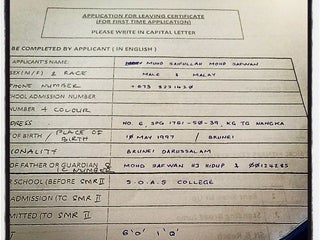 APPLICATION FOR LEAVING CERTIFICATE
(FOR FIRST TIME APPLICATION)
PLEASE WRITE IN CAPITAL LETTER
BE COMPLETED BY APPLICANT ( IN ENGLISH )
APPLICANT'S NAME: MUHD SAIFULLAH MOHD SAFWAN
SEX (M/F) & RACE MALE & MALAY
PHONE NUMBER +673
SCHOOL ADMISSION NUMBER
NUMBER & COLOUR
DRESS: NO. 6, SPG 1761-50-39, KG TG NANGKA
OF BIRTH / PLACE OF BIRTH 10 MAY 1997 / BRUNEI
IONALITY BRUNEI DARUSSALAM
OF FATHER OR GUARDIAN & IC NUMBER MOHD SAFWAN HJ HIDUP & 00124285
SCHOOL (BEFORE SMR II S.O.A.S COLLEGE
ADMISSION (TO SMR II
MITTED (TO SMR II
6'O' 1'A'